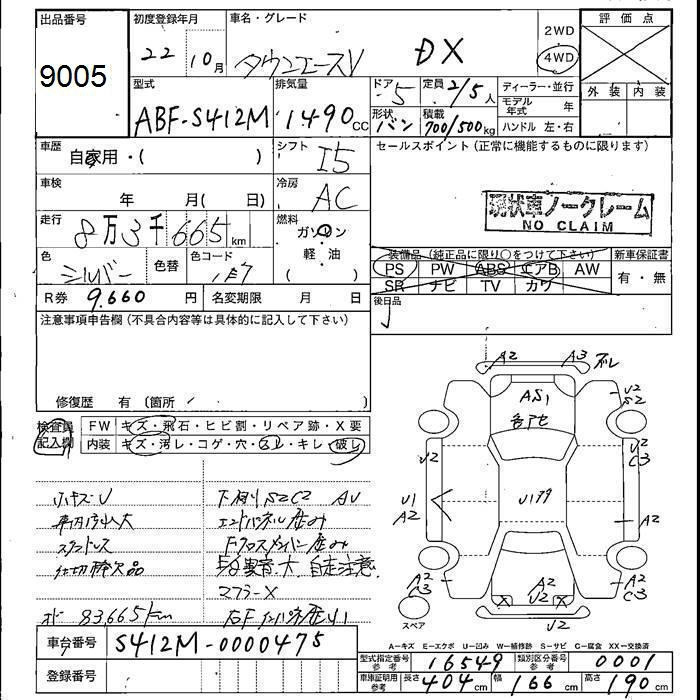 出品番号
9005
初度登録年月
22 10月
車名・グレード
タウンエースV DX
2WD
4WD
評価点
外装 内装
型式
ABF-S412M
排気量
1490cc
ドア
5
定員
2/5人
形状
バン
積載
700/500kg
ディーラー・並行
モデル年式 年
ハンドル 左・右
車歴
自家用・( )
シフト
I5
セールスポイント(正常に機能するものに限ります)
車検
年 月( 日)
冷房
AC
現状車ノークレーム
NO CLAIM
走行
8万3千665km
燃料
ガソリン
軽油
( )
色
シルバー
色替
色コード
1E7
装備品(純正品に限り○をつけて下さい)
新車保証書
PS PW ABS エアB AW
有・無
SR ナビ TV カワ
R券 9.660円
名変期限 月 日
後日品
注意事項申告欄(不具合内容等は具体的に記入して下さい)
修復歴 有 (箇所 )
検査員記入欄
FW キズ・飛石・ヒビ割・リペア跡・X要
内装 キズ・汚レ・コゲ・穴・スレ・キレ・破レ
小キズ・U
下廻り S2C2 AU
エンドパネル歪み
スタットレス
Fクロスメンバー歪み
仕切棒欠品
異音大 自走注意
マフラーX
83,665km
A2 A3 ズレ
AS1
U2
S2
U2
C3
U2
U1
A2
U199
A2
A2
C3
A2
C3
A2
U2
X X
U2
スペア
A-キズ E-エクボ U-凹み W-補修跡 S-サビ C-腐食 XX-交換済
車台番号
S412M-0000475
登録番号
型式指定番号 参考
16549
類別区分番号 参考
0001
車庫証明用 参考
長さ 404cm
幅 166cm
高さ 190cm